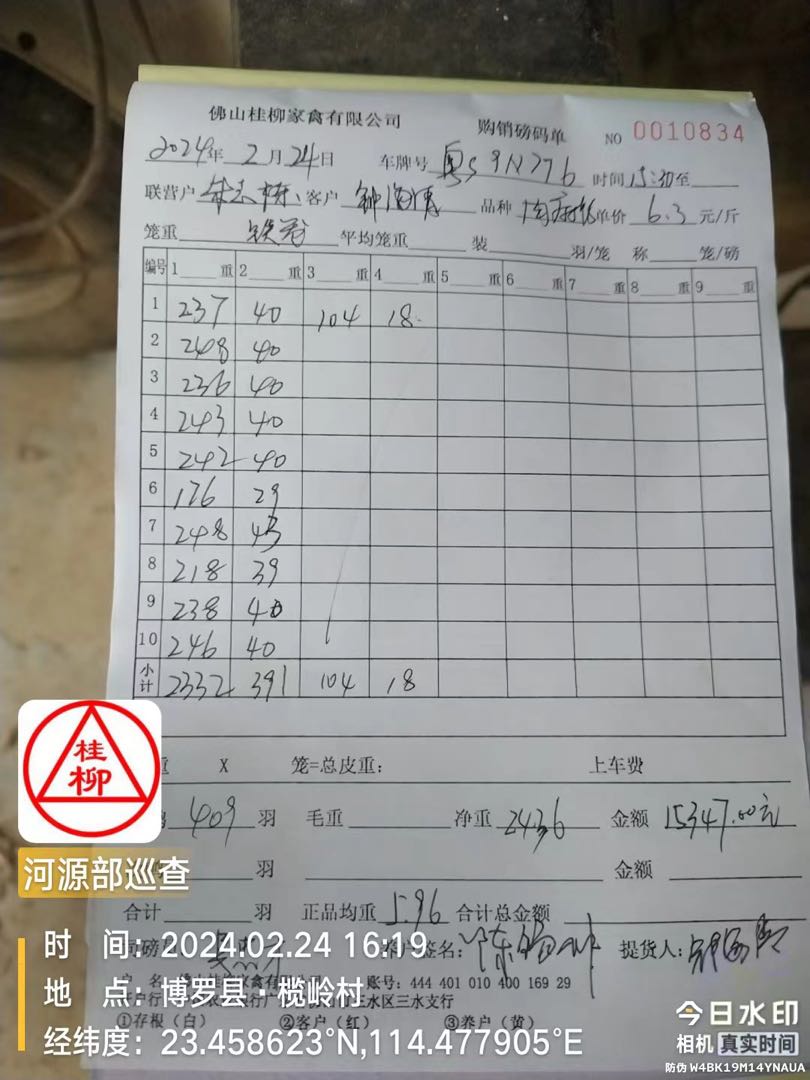 佛山桂柳家禽有限公司 购销磅码单 NO 0010834
2024年 2月 24日 车牌号 粤S9N776 时间 15:30至
联营户 客户 品种 单价 6.3 元/斤
笼重 平均笼重 装 羽/笼 称 笼/磅
编号 1 重 2 重 3 重 4 重 5 重 6 重 7 重 8 重 9 重
1 237 40 104 18
2 248 40
3 236 40
4 243 40
5 242 40
6 176 29
7 248 43
8 218 39
9 238 40
10 246 40
小计 2332 391 104 18
重 X 笼=总皮重: 上车费
409 羽 毛重 净重 2436 金额 15347.00元
羽 金额
合计 羽 正品均重 5.96 合计总金额
司磅 客户签名: 提货人:
户 名: 佛山桂柳家禽有限公司 账号: 444 401 010 400 169 29
三水区三水支行
①存根（白） ②客户（红） ③养户（黄）
桂
柳
河源部巡查
时 间: 2024.02.24 16:19
地 点: 博罗县·榄岭村
经纬度: 23.458623°N,114.477905°E
今日水印
相机 真实时间
防伪 W4BK19M14YNAUA